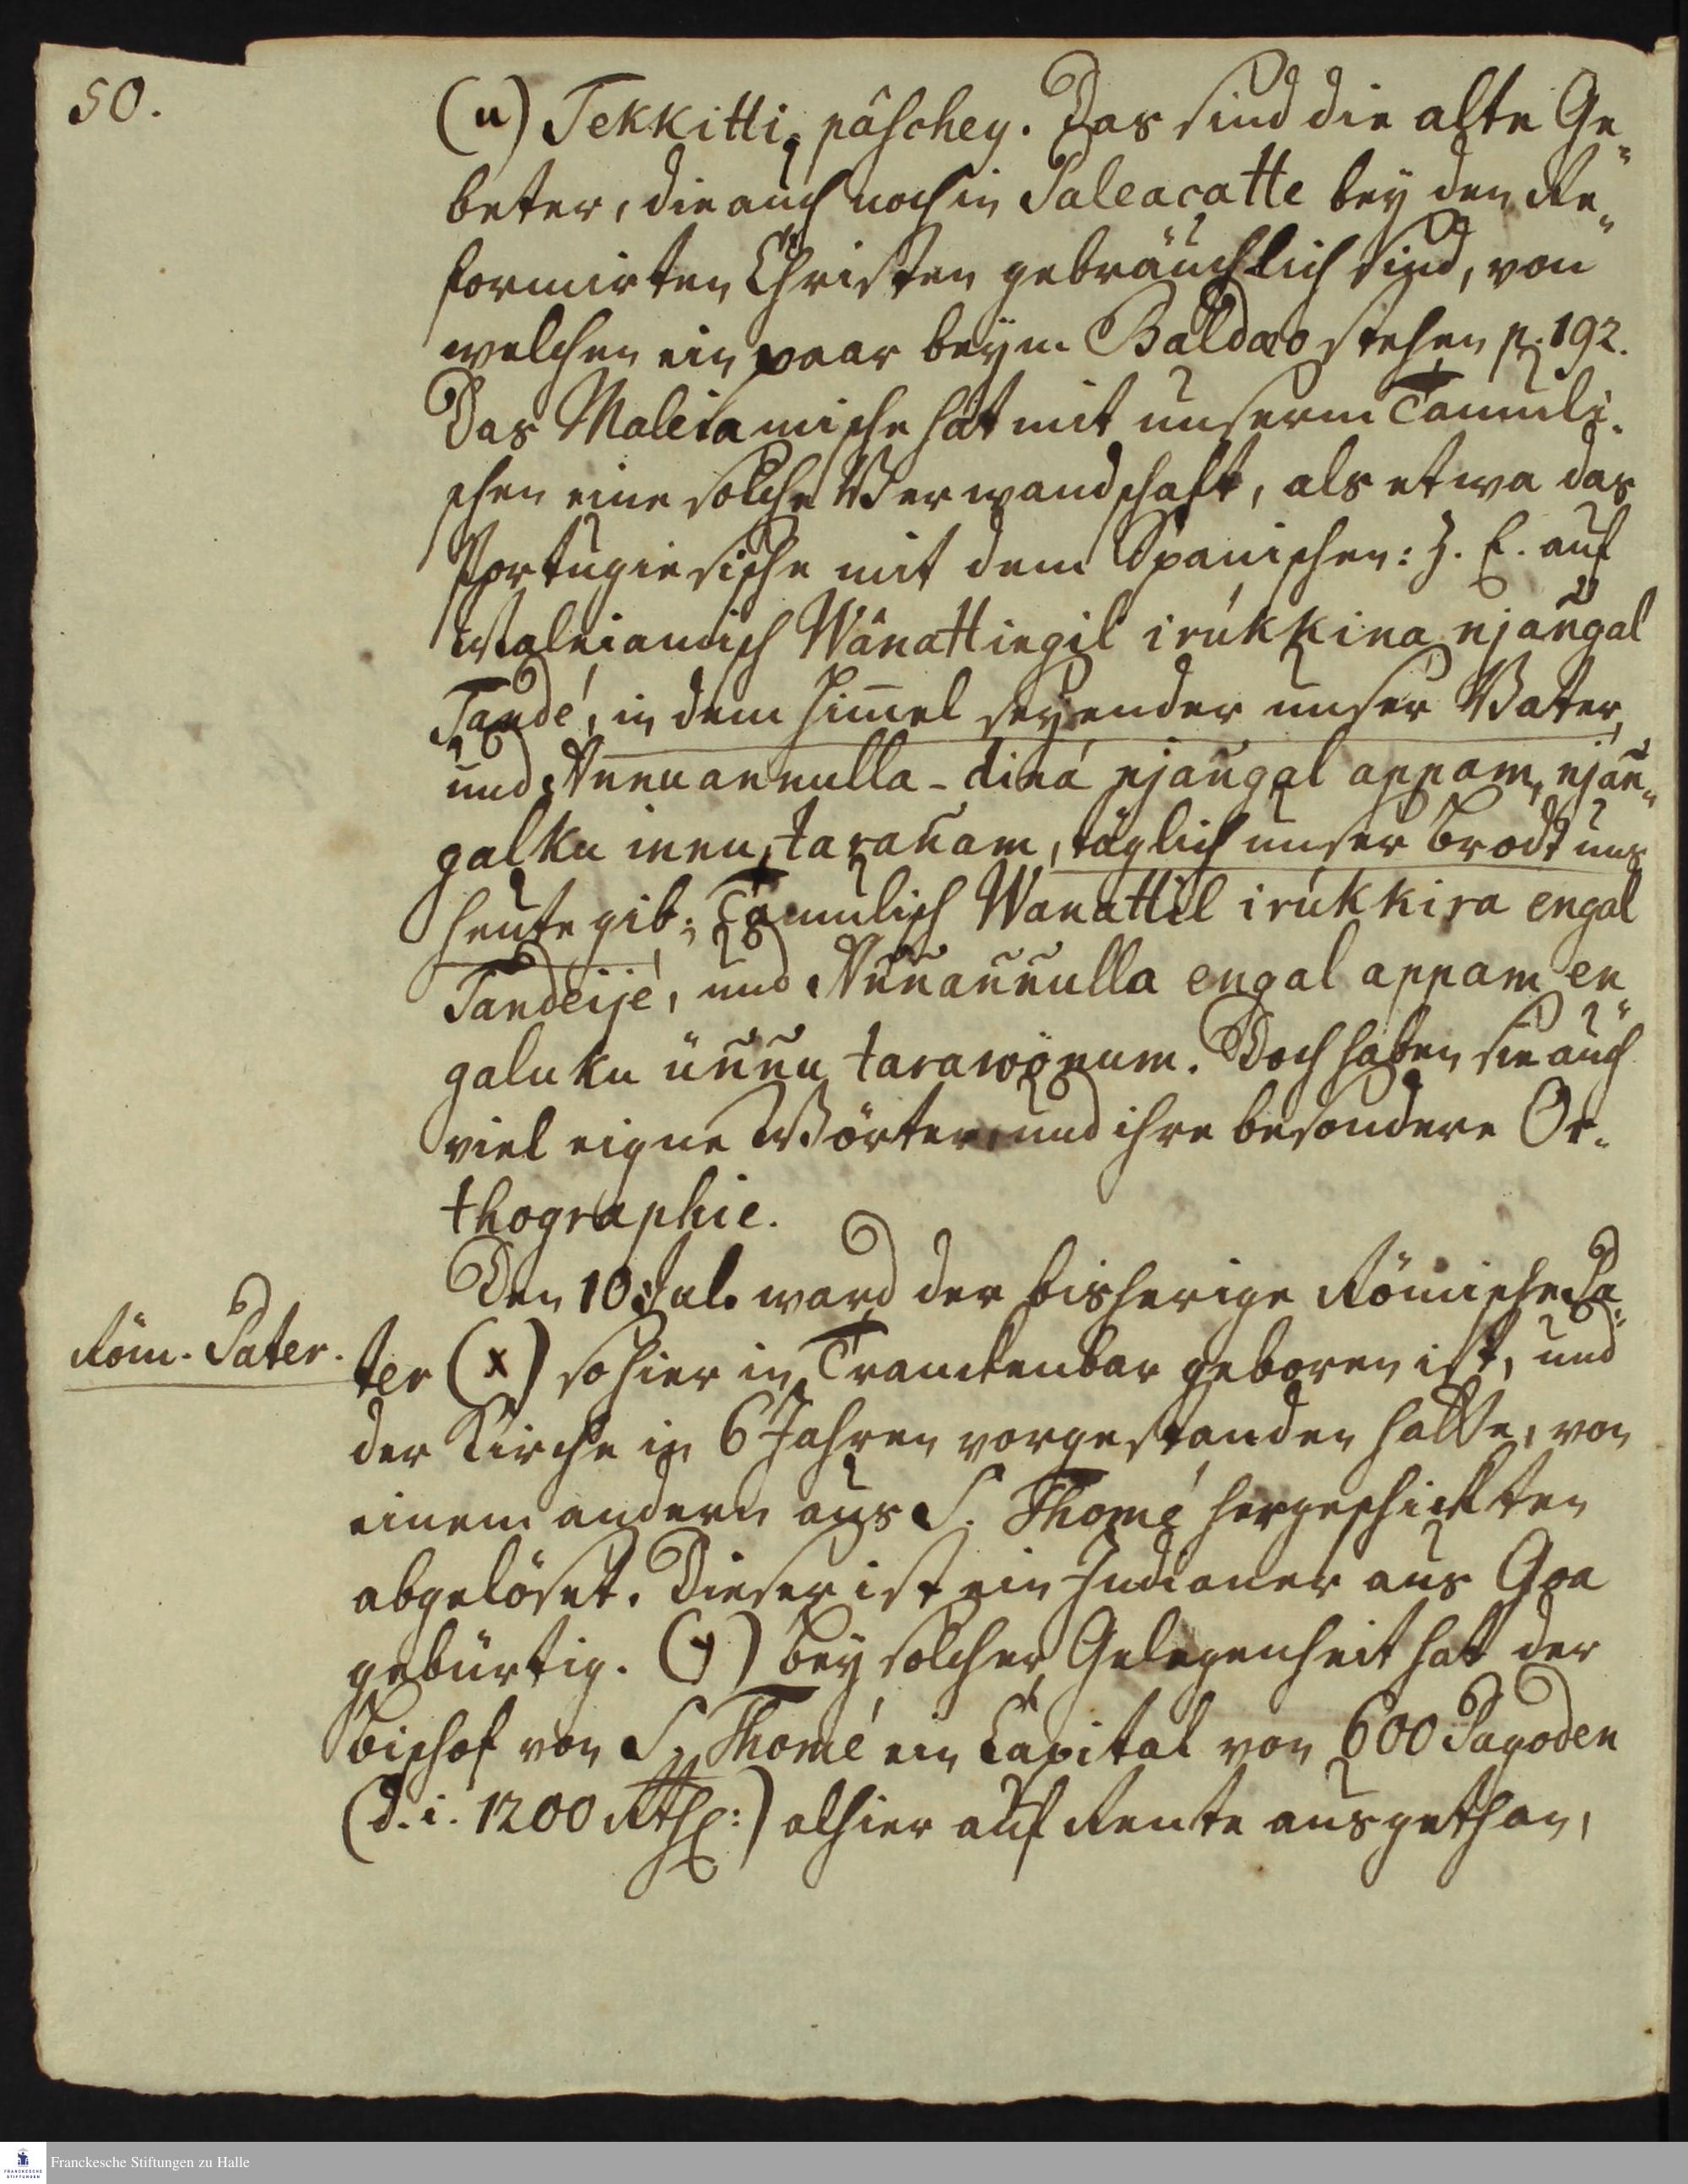 50.
(u) Tekkitti, pâschey. Das sind die alte Ge„
beter, die auch noch in Paleacatte bey den Re„
formirten Christen gebräuchlich sind, von
welchen ein paar beym Baldæo stehen p. 192.
Das Maleiamische hat mit unserm Tamuli„
schen eine solche Verwandschaft, als etwa das
Portugiesische mit dem Spanischen: Z. E. auf
Maleiamisch Wânattingil irúkkina njangal
Tandé, in dem Himel seyender unser Vater,
und Annannulla-diná njangal appam, njan„
galku innu, taranam, täglich unser Brodt uns
heute gib; Tamulisch Wanattil irúkkira engal
Tandeijé, und Annannulla engal appam en„
galuku ünnu tarawönum. Doch haben sie auch
viel eigne Wörter, und ihre besondere Or„
thographie.
Den 10 Jul. ward der bisherige Römische Pa„
Röm. Pater.
ter (x) so hier in Tranckenbar geboren ist, und
der Kirche in 6 Jahren vorgestanden hatte, von
einem andern aus S. Thomé hergeschickten
abgelöset. Dieser ist ein Indianer aus Goa
gebürtig. (y) Bey solcher Gelegenheit hat der
Bischof von S. Thomé ein Capital von 600 Pagoden
(d. i. 1200 Rthl:) alhier auf Rente ausgethan,
Franckesche Stiftungen zu Halle